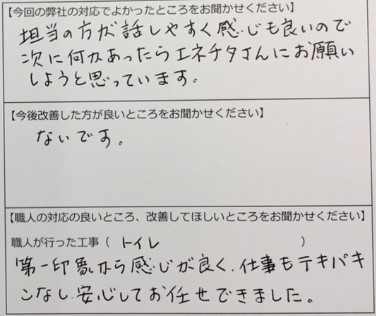 【今回の弊社の対応でよかったところをお聞かせください】
担当の方が話しやすく感じも良いので
次に何かあったらエネチタさんにお願い
しようと思っています。
【今後改善した方が良いところをお聞かせください】
ないです。
【職人の対応の良いところ、改善してほしいところをお聞かせください】
職人が行った工事（ トイレ ）
第一印象から感じが良く、仕事もテキパキ
こなし、安心してお任せできました。